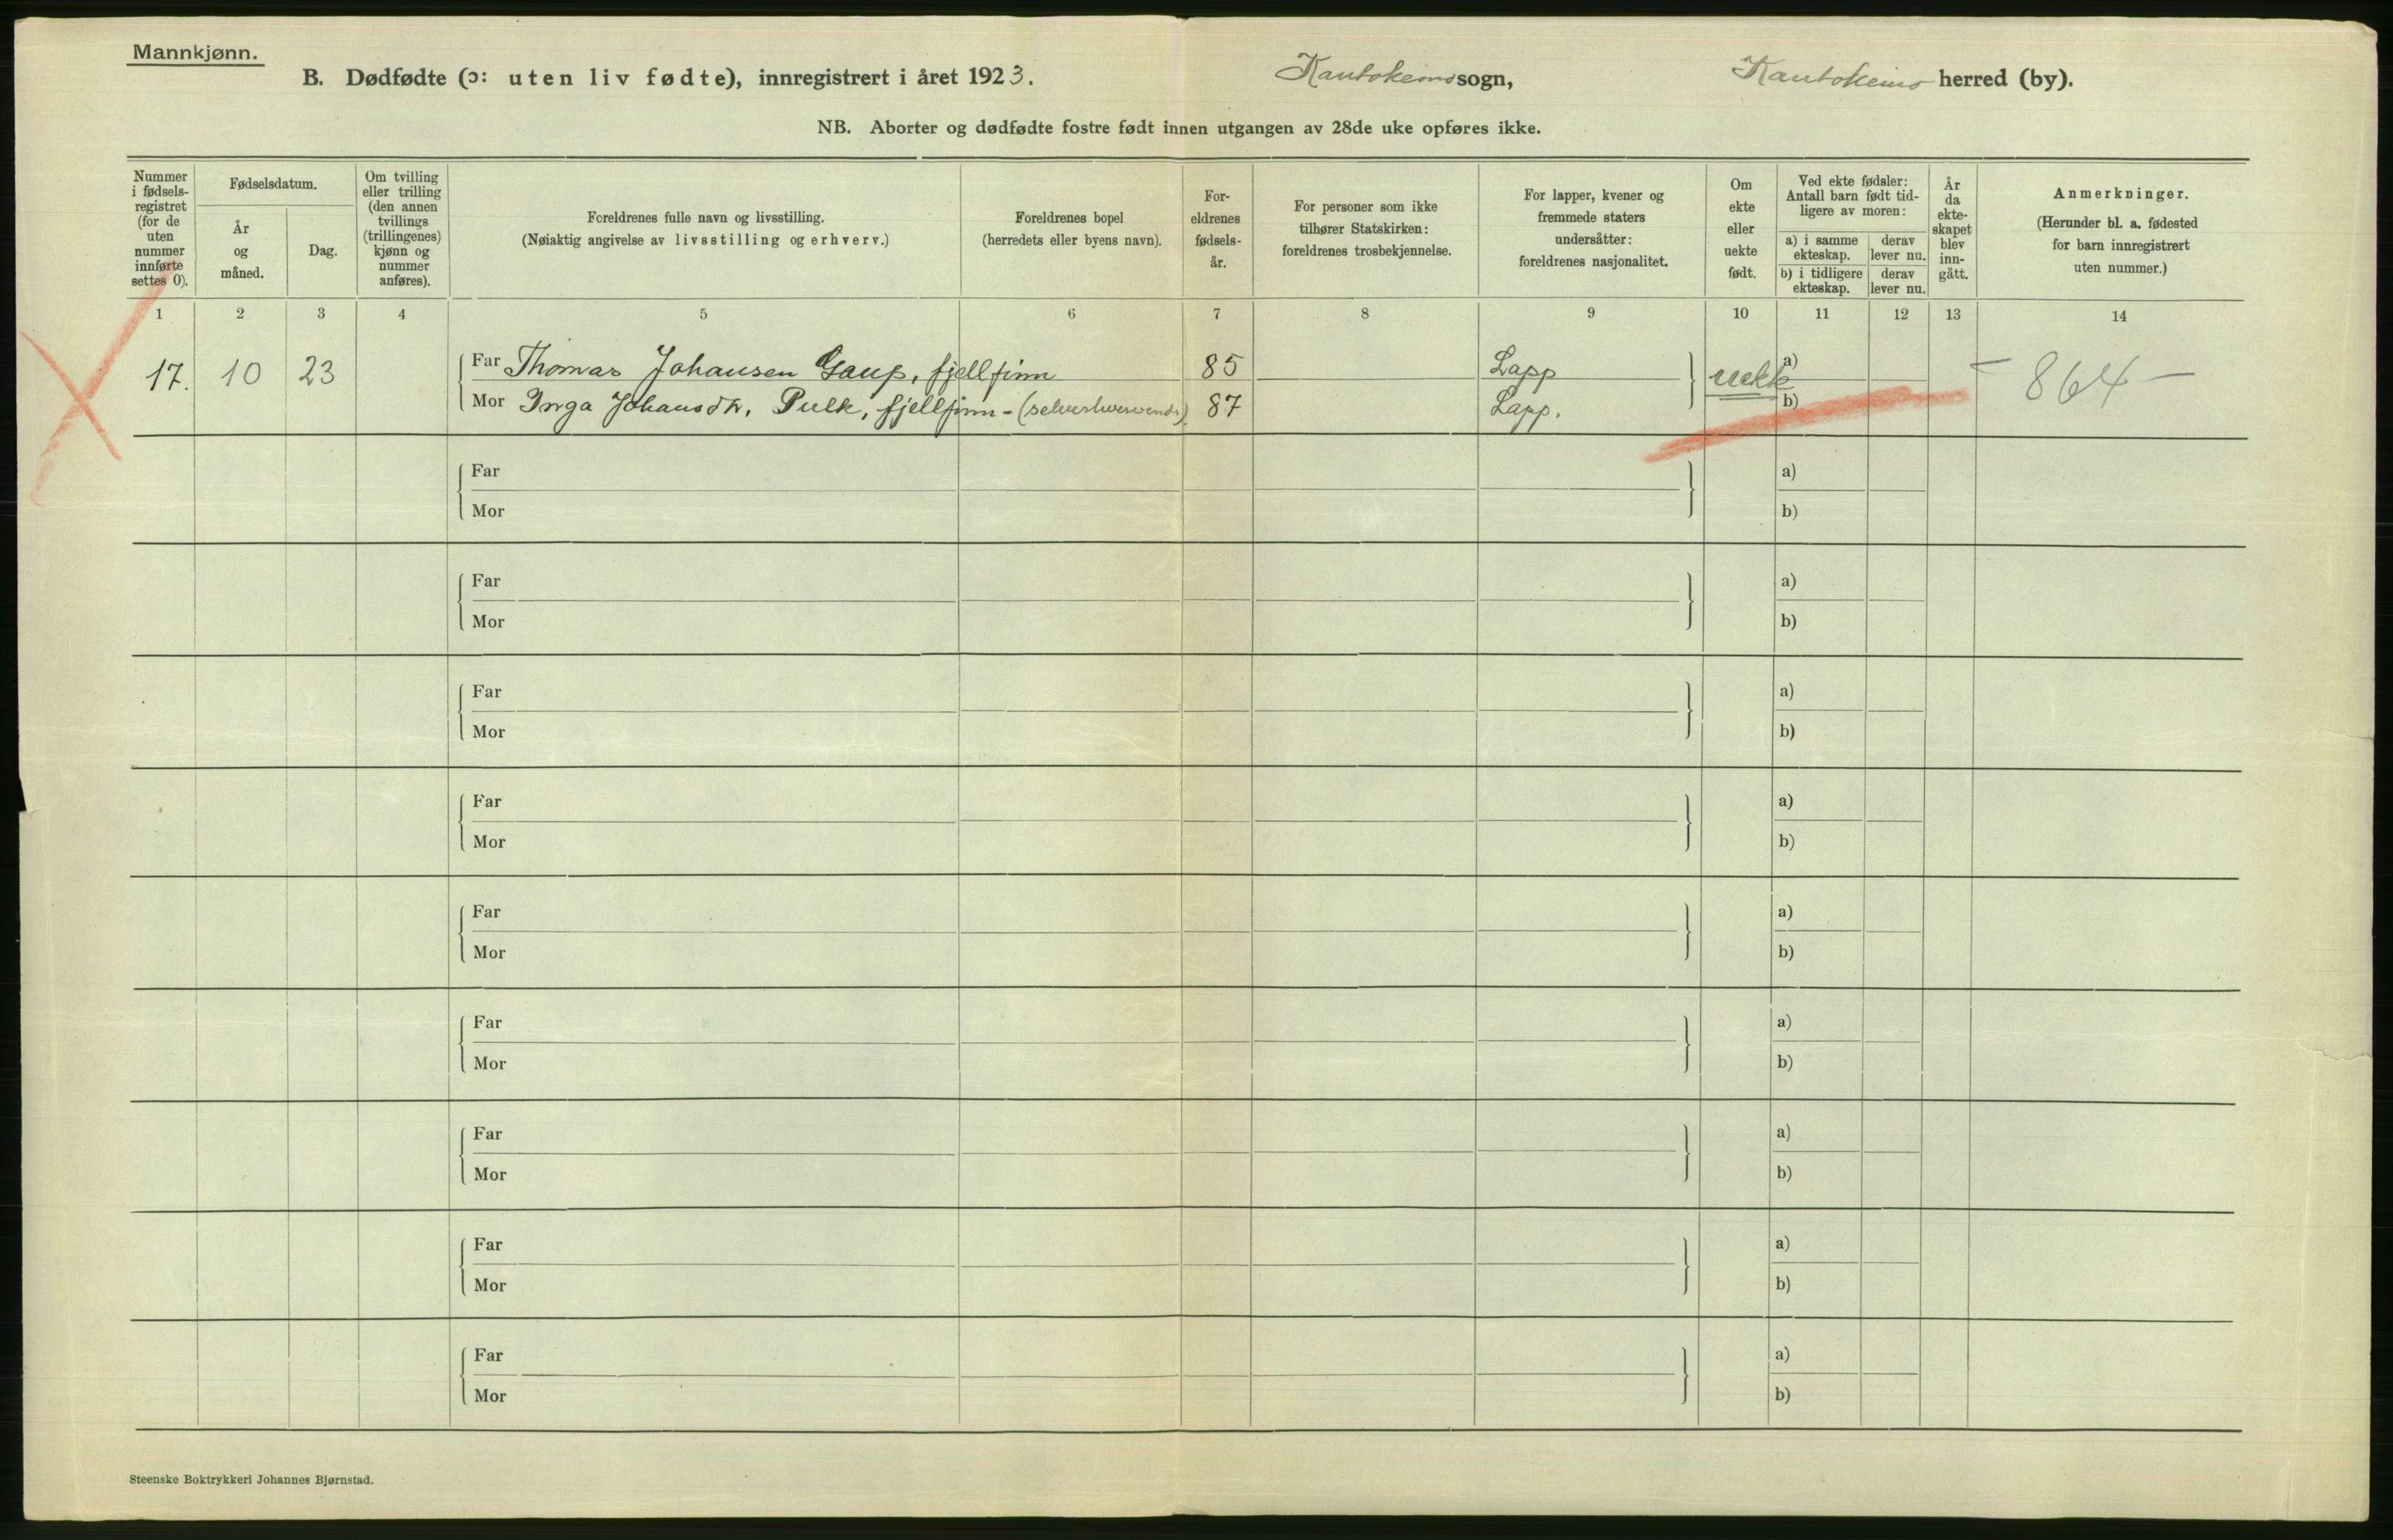 Mannkjønn.
B. Dødfødte (ɔ: uten liv fødte), innregistrert i året 1923. Kautokeino sogn, Kautokeino herred (by).
NB. Aborter og dødfødte fostre født innen utgangen av 28de uke opføres ikke.
Nummer
i fødsels-
registret
(for de
uten
nummer
innførte
settes 0).
Fødselsdatum.
År
og
måned.
Dag.
Om tvilling
eller trilling
(den annen
tvillings
(trillingenes)
kjønn og
nummer
anføres).
Foreldrenes fulle navn og livsstilling.
(Nøiaktig angivelse av livsstilling og erhverv.)
Foreldrenes bopel
(herredets eller byens navn).
For-
eldrenes
fødsels-
år.
For personer som ikke
tilhører Statskirken:
foreldrenes trosbekjennelse.
For lapper, kvener og
fremmede staters
undersåtter:
foreldrenes nasjonalitet.
Om
ekte
eller
uekte
født.
Ved ekte fødsler:
Antall barn født tid-
ligere av moren:
a) i samme
ekteskap.
derav
lever nu.
b) i tidligere
ekteskap.
derav
lever nu.
År
da
ekte-
skapet
blev
inn-
gått.
Anmerkninger.
(Herunder bl. a. fødested
for barn innregistrert
uten nummer.)
1 2 3 4 5 6 7 8 9 10 11 12 13 14
17. 10 23
Far Thomas Johansen Gaup, fjellfinn 85 Lapp uekk a) - 864 -
Mor Inga Johansdtr. Pulk, fjellfinn - (selverhvervende) 87 Lapp. b)
Far a)
Mor b)
Far a)
Mor b)
Far a)
Mor b)
Far a)
Mor b)
Far a)
Mor b)
Far a)
Mor b)
Far a)
Mor b)
Far a)
Mor b)
Far a)
Mor b)
Steenske Boktrykkeri Johannes Bjørnstad.